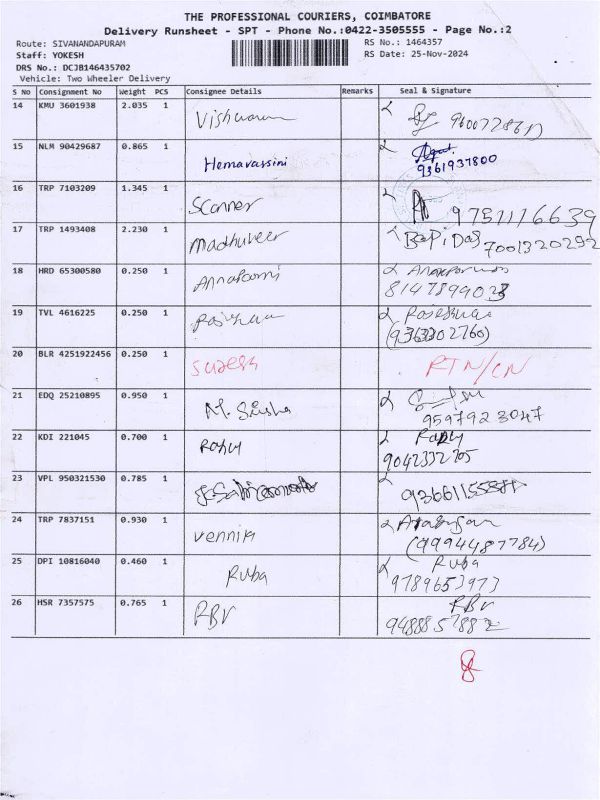 THE PROFESSIONAL COURIERS, COIMBATORE
Delivery Runsheet - SPT - Phone No.:0422-3505555 - Page No.:2
Route: SIVANANDAPURAM RS No.: 1464357
Staff: YOKESH RS Date: 25-Nov-2024
DRS No.: DCJB146435702
Vehicle: Two Wheeler Delivery
S No Consignment No Weight PCS Consignee Details Remarks Seal & Signature
14 KMU 3601938 2.035 1
15 NLM 90429687 0.865 1 Hemavassini
9361937800
16 TRP 7103209 1.345 1 Scanner 9751116639
17 TRP 1493408 2.230 1 Madhuveer Bapi Das
7001320292
18 HRD 65300580 0.250 1
8147899023
19 TVL 4616225 0.250 1
(9363302760)
20 BLR 4251922456 0.250 1 Suresh RTN/CN
21 EDQ 25210895 0.950 1
9597923047
22 KDI 221045 0.700 1
9042332705
23 VPL 950321530 0.785 1
24 TRP 7837151 0.930 1
(9994487784)
25 DPI 10816040 0.460 1 Ruba Ruba
9789653973
26 HSR 7357575 0.765 1 RBV RBV